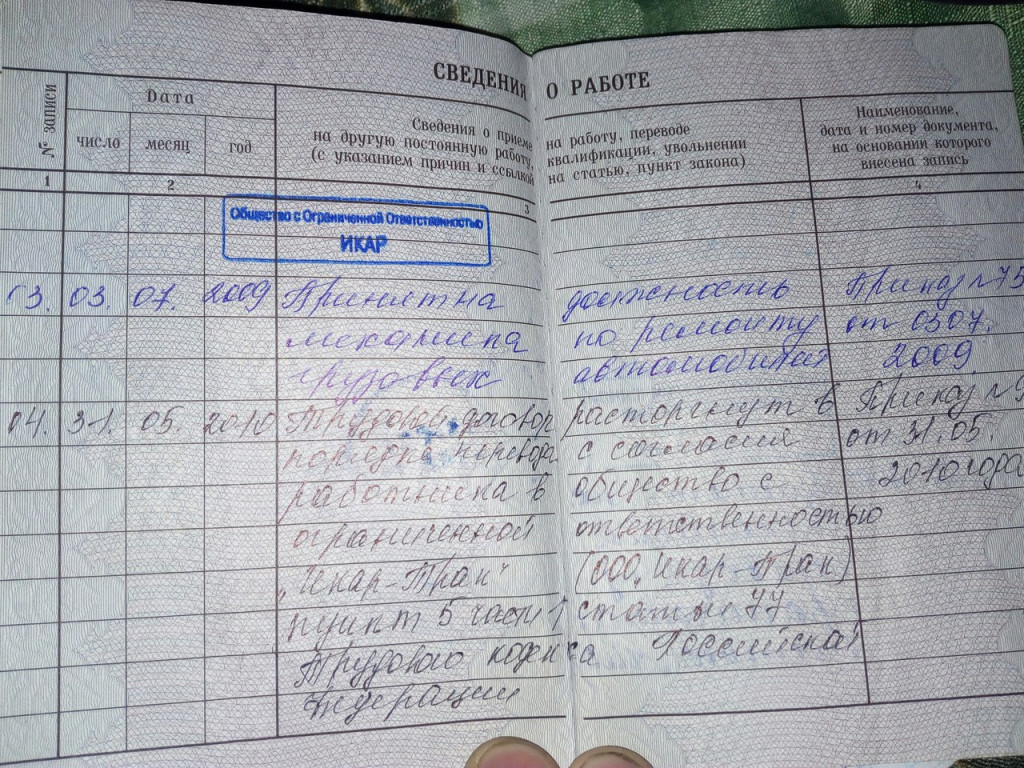 СВЕДЕНИЯ О РАБОТЕ
№ записи
Дата
Сведения о приеме на работу, переводе
Наименование,
число месяц год
на другую постоянную работу, квалификации, увольнении
дата и номер документа,
(с указанием причин и ссылкой на статью, пункт закона)
на основании которого
внесена запись
1 2 3 4
Общество с Ограниченной Ответственностью
ИКАР
03. 03. 07. 2009 Принят на должность Приказ №75
механика по ремонту от 0307.
грузовых автомобилей 2009.
04. 31. 05. 2010 Трудовой договор расторгнут в Приказ №9
порядке перевода с согласия от 31.05.
работника в общество с 2010 года
ограниченной ответственностью
„Икар-Трак" (ООО „Икар-Трак)
пункт 5 части 1 статьи 77
Трудового кодекса Российской
Федерации